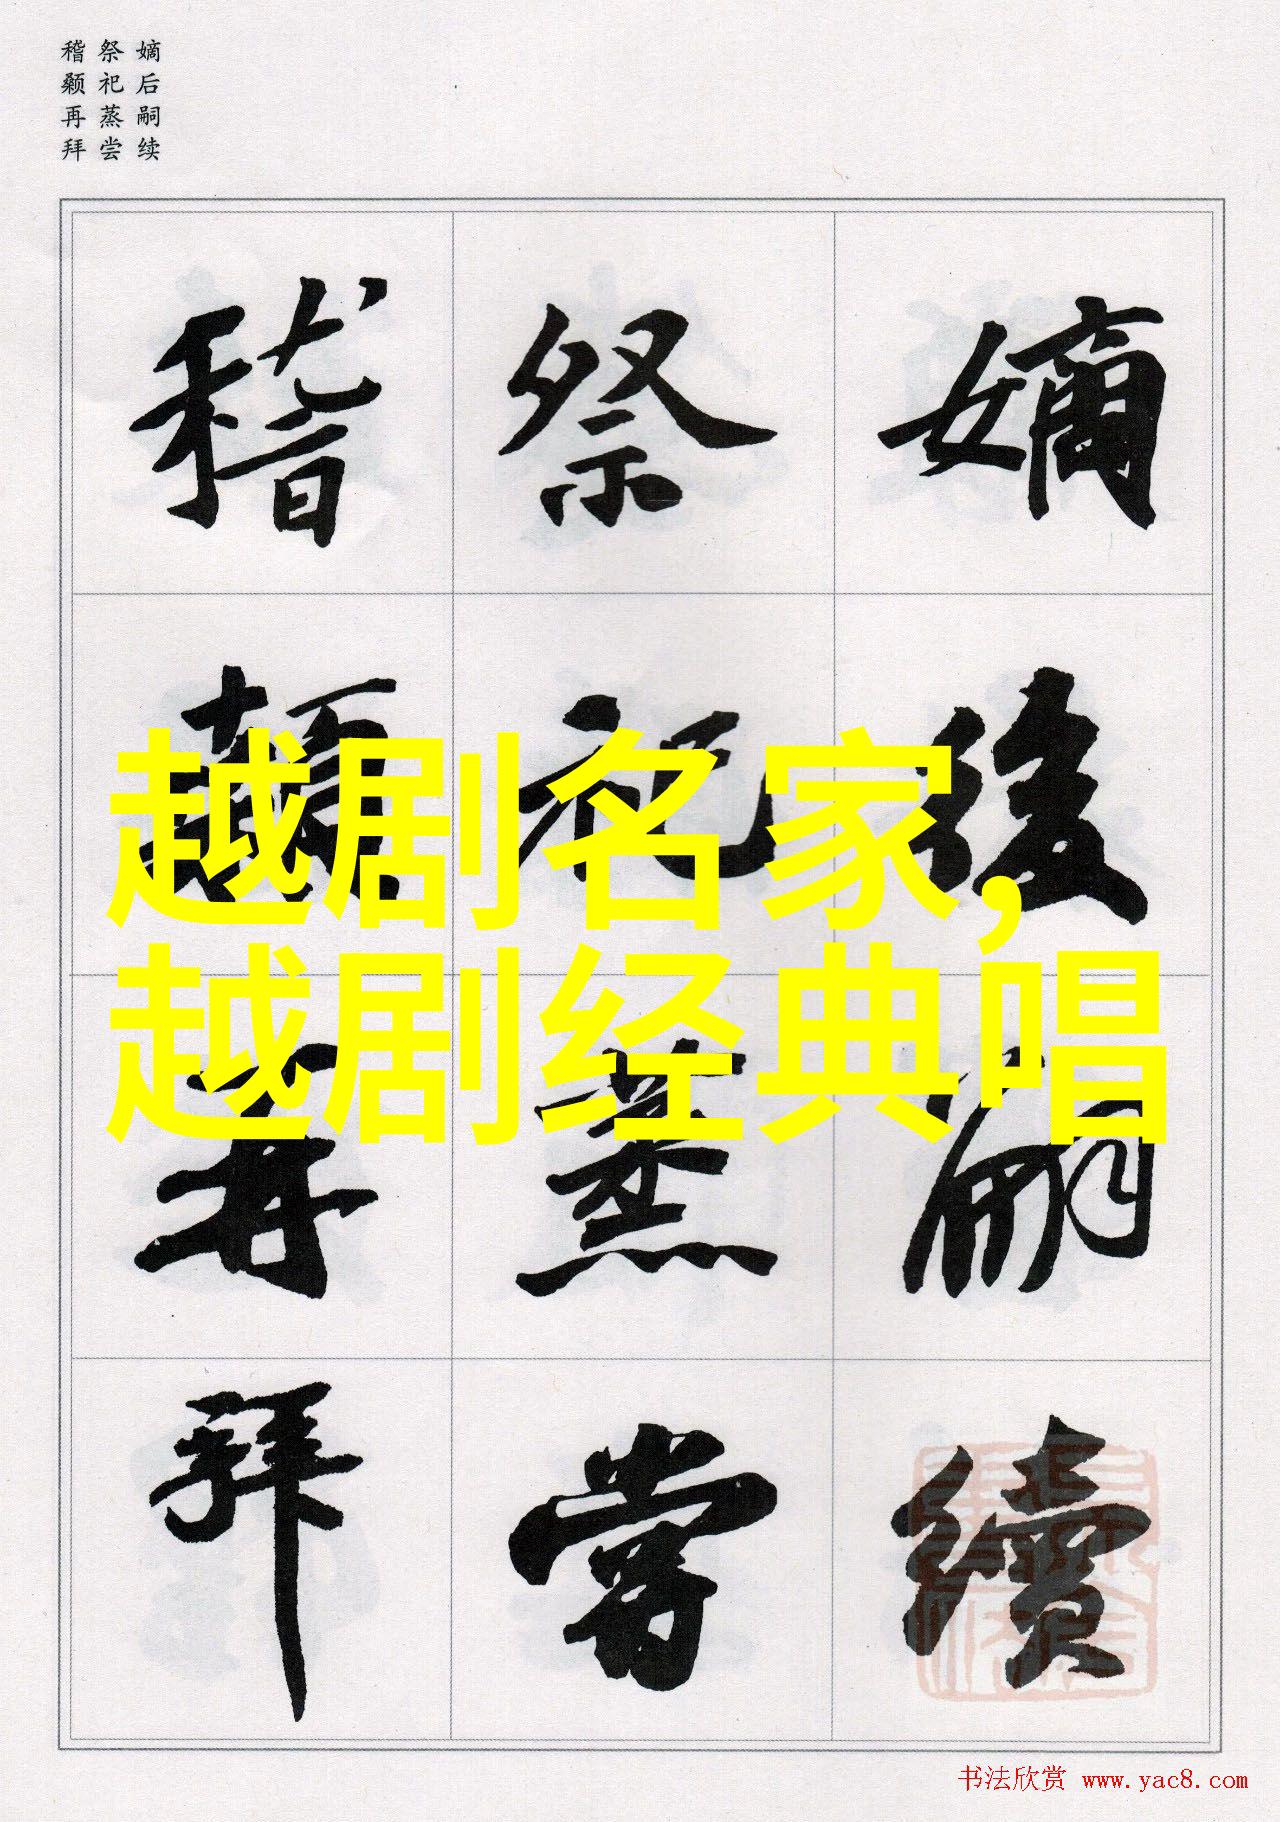 嫡后嗣续
祭祀蒸尝
稽颡再拜
嫡後嗣續
祭祀蒸嘗
稽顙再拜
越剧名家，
越剧经典唱
书法欣赏 www.yac8.com